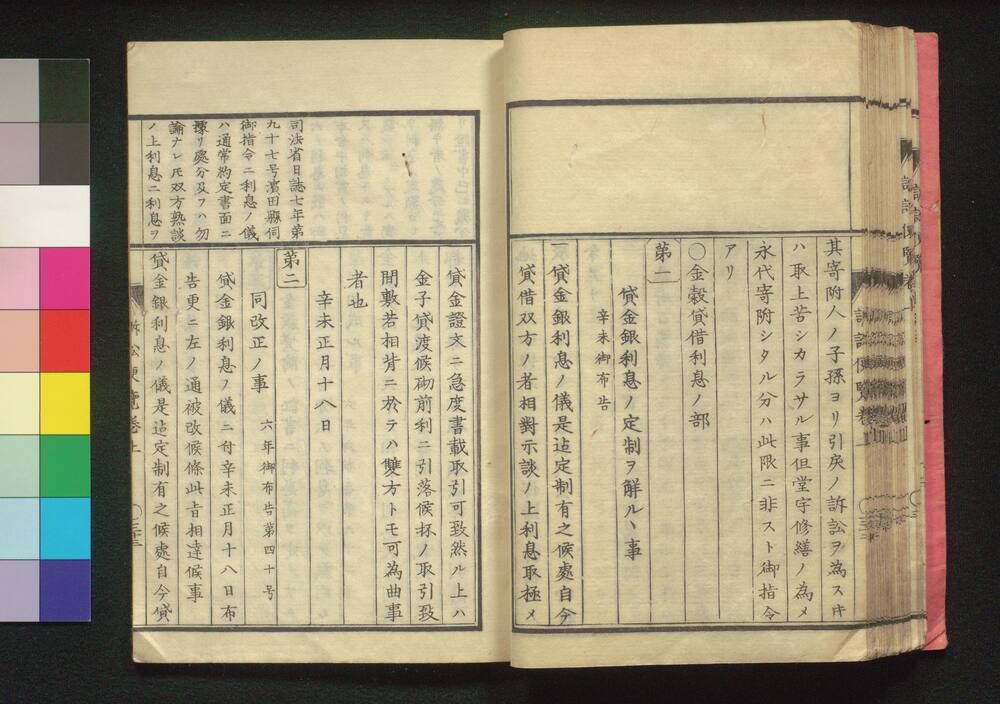 其寄附人ノ子孫ヨリ引戻ノ訴訟ヲ為ス𪜈
ハ取上苦シカラサル事但堂宇修繕ノ為メ
永代寄附シタル分ハ此限ニ非スト御指令
アリ
〇金穀貸借利息ノ部
第一
貸金銀利息ノ定制ヲ解ルヽ事
辛未御布告
一貸金銀利息ノ儀是迠定制有之候處自今
貸借双方ノ者相對示談ノ上利息取極メ
貸金證文ニ急度書載取引可致然ル上ハ
金子貸渡候砌前利ニ引落候抔ノ取引致
間敷若相背ニ於テハ雙方トモ可為曲事
者也
辛未正月十八日
第二
同改正ノ事 六年御布告第四十号
貸金銀利息ノ儀ニ付辛未正月十八日布
告更ニ左ノ通被改候條此旨相達候事
貸金銀利息ノ儀是迠定制有之候處自今貸
司法省日誌七年第
九十七号濱田縣伺
御指令ニ利息ノ儀
ハ通常約定書面ニ
據リ處分及フハ勿
論ナレ𪜈双方熟談
ノ上利息ニ利息ヲ
訴訟便覧巻上
〇三十三